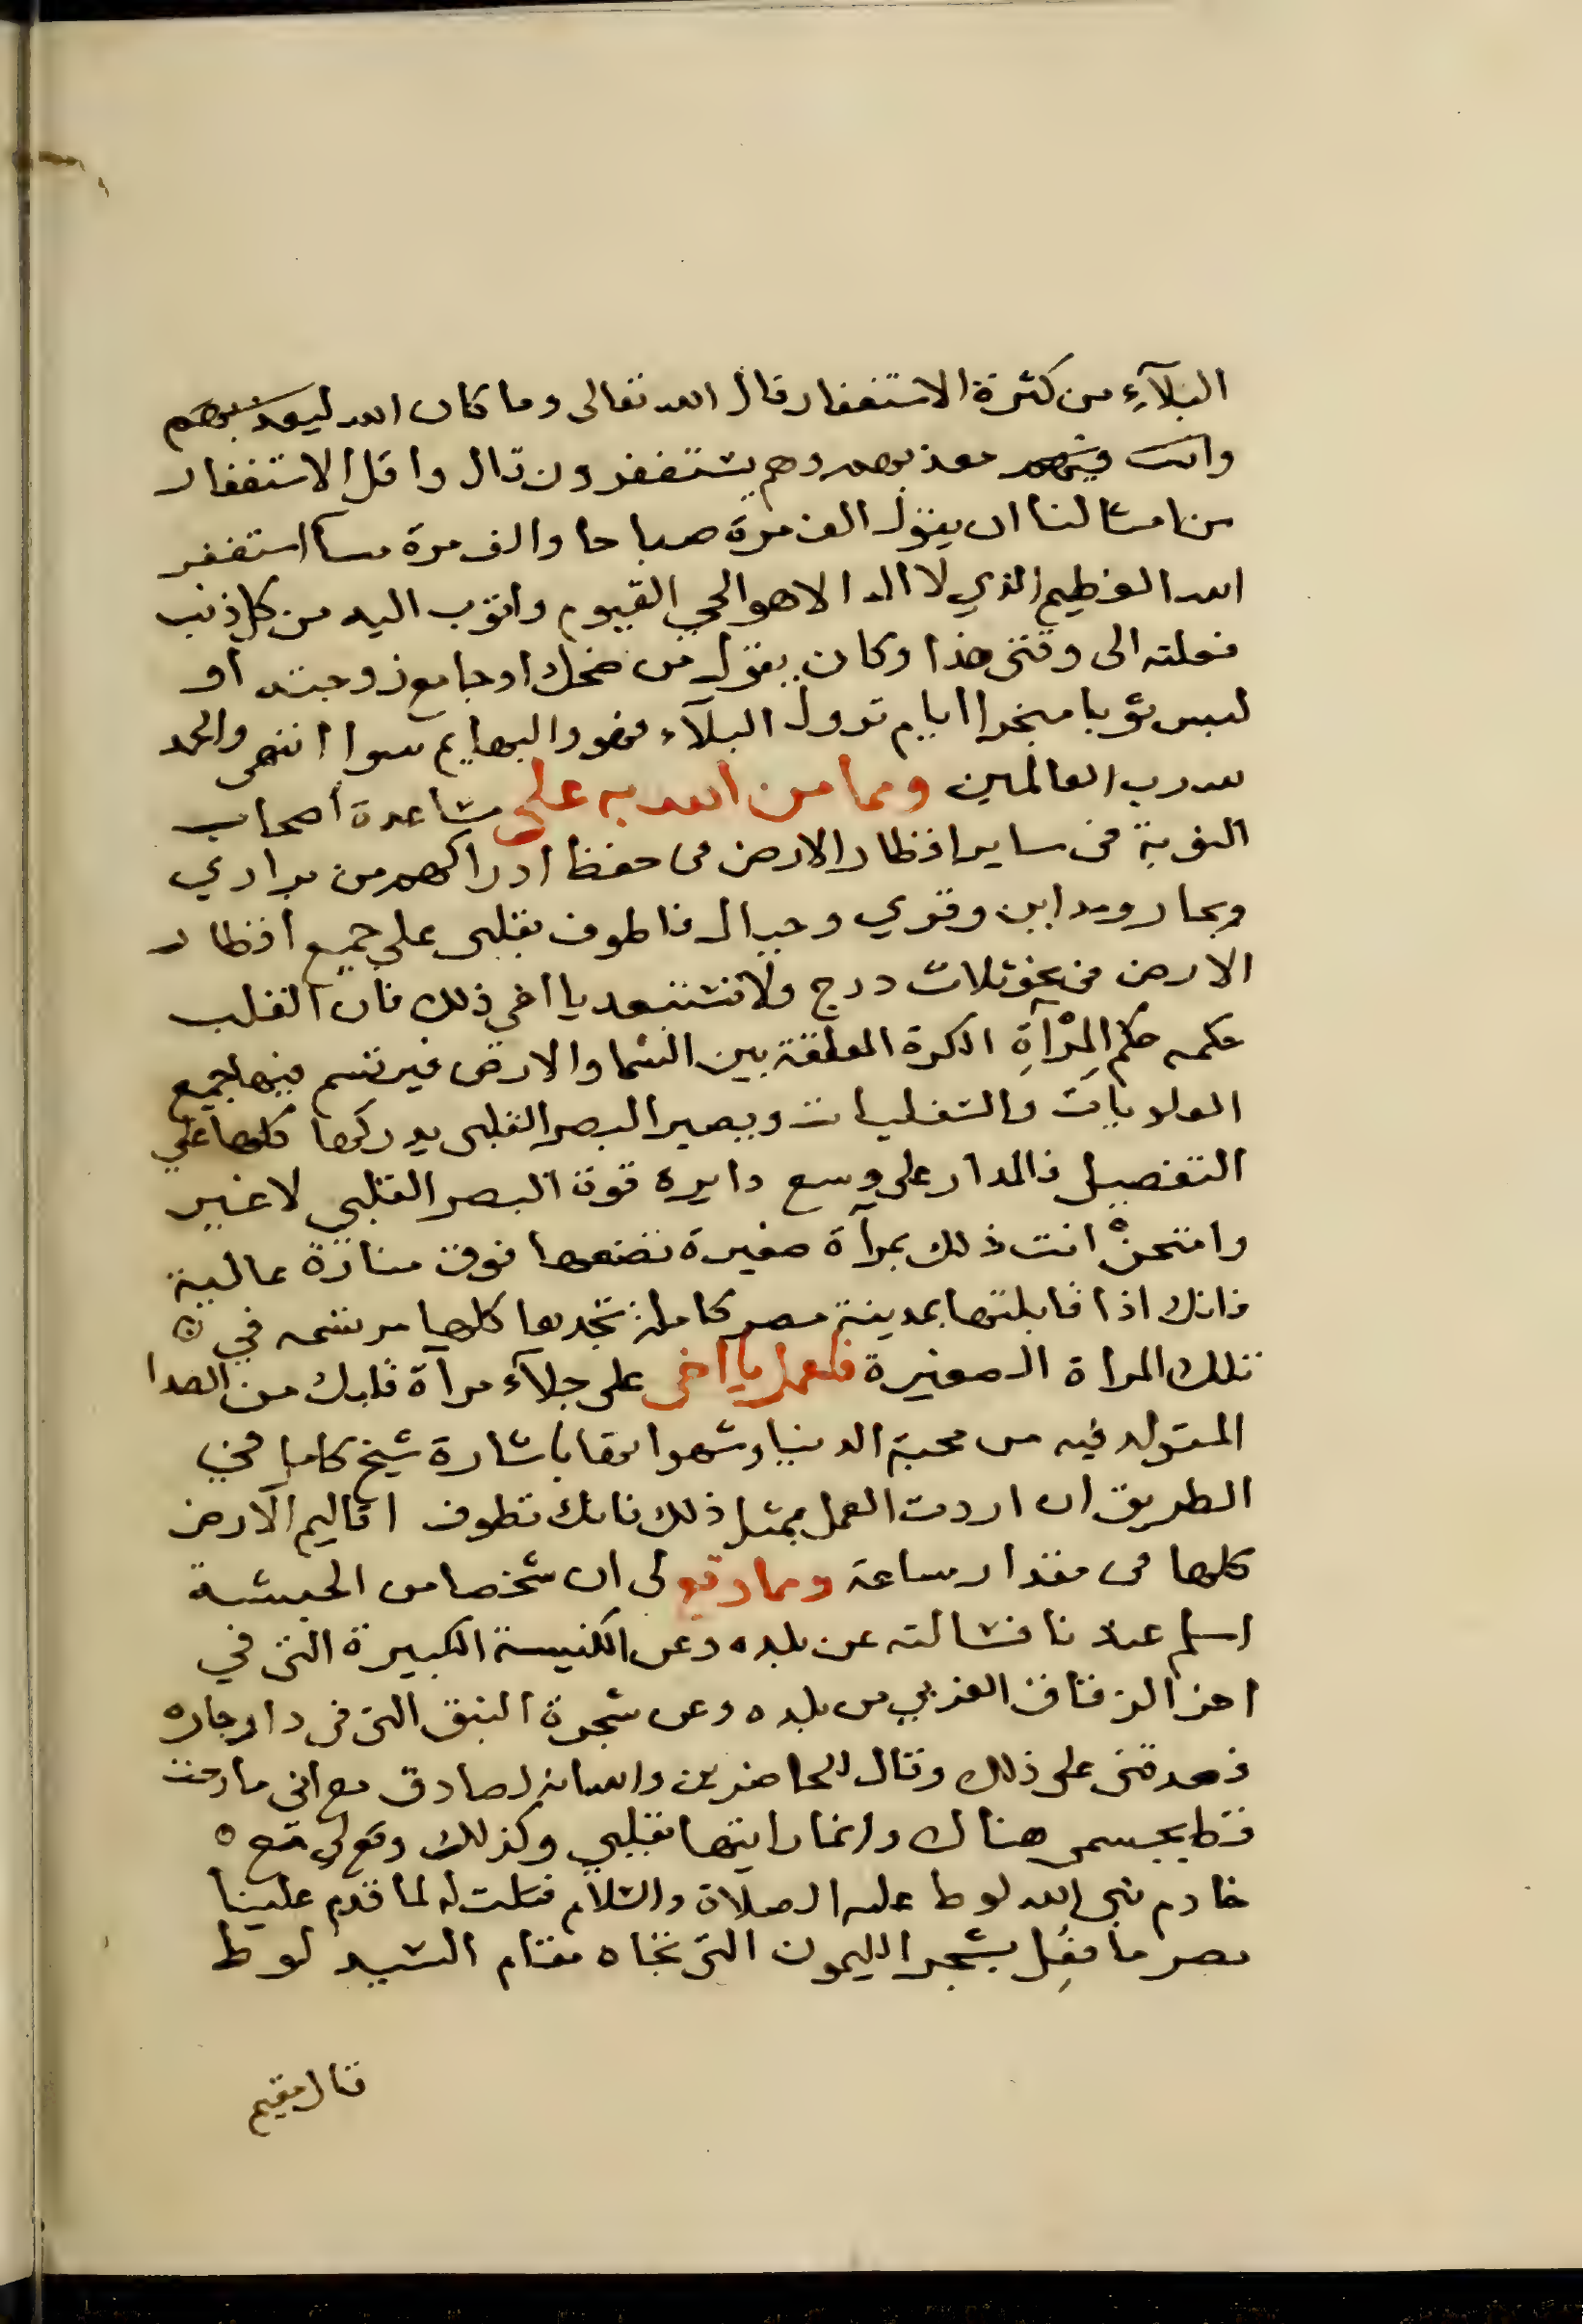 البلآءِ من كثرة الاستغفار قال الله تعالى وما كان الله ليعذبهم
وانت فيهم معذبهم وهم يستغفرون قال واقل الاستغفار
من امثالنا ان يقول الف مرة صباحا والف مرة مسآ استغفر
الله العظيم الذي لا اله الا هو الحي القيوم واتوب اليه من كل ذنب
فعلته الى وقتى هذا وكان يقول من ضحك او جامع زوجته او
لبس ثوبا مبخرا ايام نزول البلآء فهو والبهايم سوا انتهى والحمد
لله رب العالمين ومما من الله به على مشاعدة اصحاب
النوبة فى ساير اقطار الارض فى حفظ ادراكهم من برارى
وبحار ومداين وقري وجبال فاطوف بقلبى على جميع اقطار
الارض فى نحو ثلاث درج ولا تستبعد يا اخى ذلك فان القلب
حكمه حكم المِرْآةِ الكرة المعلقة بين السما والارض فيرتسم فيها جميع
العلويات والسفليات ويصير البصر القلبى يدركها كلها على
التفصيل فالمدار على وسع دايرة قوة البصر القلبي لا غير
وامتحنْ انت ذلك بمرآة صغيرة تضعها فوق منارة عالية
فانك اذا قابلتها بمدينة مصر كاملة تجدها كلها مرتسمه في ه
تلك المراة الصغيرة فاعمل يا اخى على جلآء مرآة قلبك من الصدا
المتولد فيه من محبة الدنيا وشهواتها باشارة شيخ كامل في
الطريق ان اردت العمل بمثل ذلك فانك تطوف اقاليم الارض
كلها فى مقدار ساعة ومما وقع لى ان شخصا من الحبشة
اسلم عندنا فسالته عن بلده وعن الكنيسة الكبيرة التى في
اخر الزقاق الغربي من بلده وعن شجرة النبق التى فى دار جاره
فصدقنى على ذلك وقال للحاضرين والله انه لصادق مع انى ما رحت
قط بجسمى هناك وانما رايتها بقلبي وكذلك وقع لى مع ه
خادم نبى الله لوط عليه الصلاة والسلام فقلت له لما قدم علينا
مصر ما فعل بشجر الليمون التى تجاه مقام السيد لوط
قال مقيم